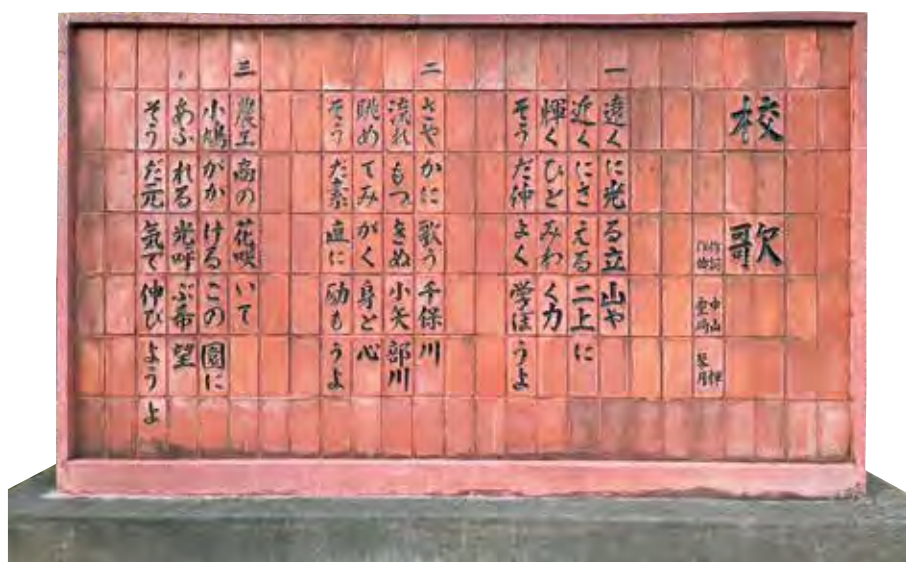 校歌
作詞 中山 輝
作曲 室崎 琴月
一
遠くに光る立山や
近くにさえる二上に
輝くひとみわく力
そうだ仲よく学ぼうよ
二
さやかに歌う千保川
流れもつきぬ小矢部川
眺めてみがく身と心
そうだ素直に励もうよ
三
農工商の花咲いて
小鳩がかけるこの園に
あふれる光呼ぶ希望
そうだ元氣で伸びようよ